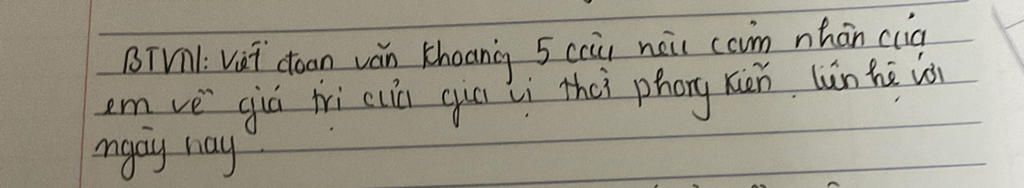 BTVN: Viết đoạn văn khoảng 5 câu nêu cảm nhân của
em về giá trị của gia vị thời phong kiến. liên hệ với
ngày nay.